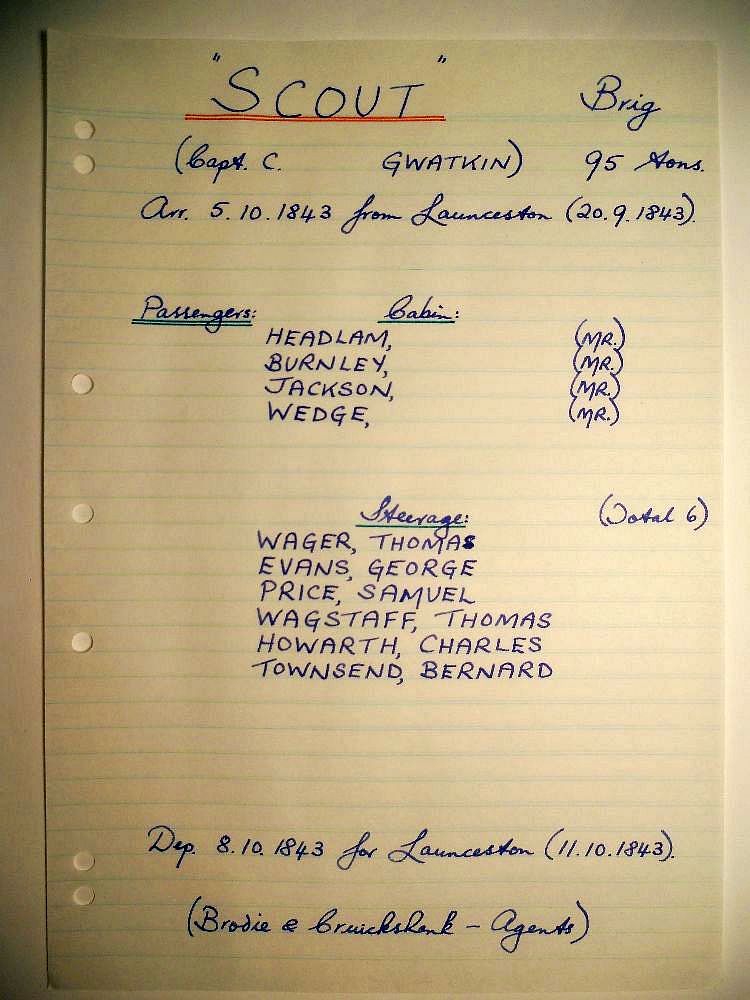 "SCOUT" Brig
(Capt. C. GWATKIN) 95 tons.
Arr. 5.10.1843 from Launceston (20.9.1843).
Passengers: Cabin:
HEADLAM, (MR.)
BURNLEY, (MR.)
JACKSON, (MR.)
WEDGE, (MR.)
Steerage: (Total 6)
WAGER, THOMAS
EVANS, GEORGE
PRICE, SAMUEL
WAGSTAFF, THOMAS
HOWARTH, CHARLES
TOWNSEND, BERNARD
Dep. 8.10.1843 for Launceston (11.10.1843).
(Brodie & Cruickshank - Agents)